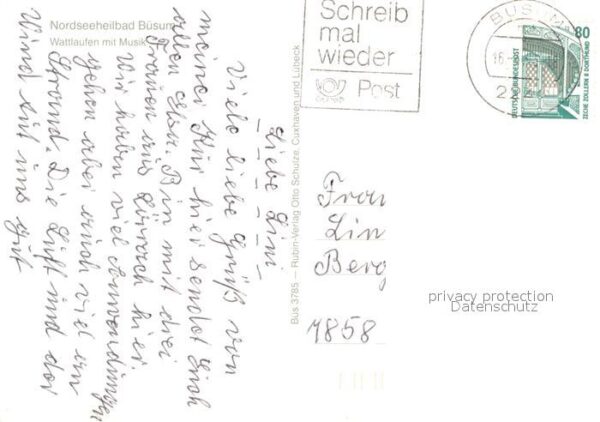 Nordseeheilbad Büsum
Wattlaufen mit Musik
Liebe Lini
Viele liebe Grüß von
meiner Kur hier sendet Euch
allen Elsa. Bin mit drei
Frauen aus Lörrach hier.
Wir haben viel Anwendungen
gehen aber auch viel an
Strand. Die Luft und der
Wind tut uns gut
Büs 3785 — Rubin-Verlag Otto Schulze, Cuxhaven und Lübeck
Schreib
mal
wieder
Post
BÜSUM
16.
2
80
DEUTSCHE BUNDESPOST
ZECHE ZOLLERN II DORTMUND
Frau
Lin
Berg
7858
privacy protection
Datenschutz